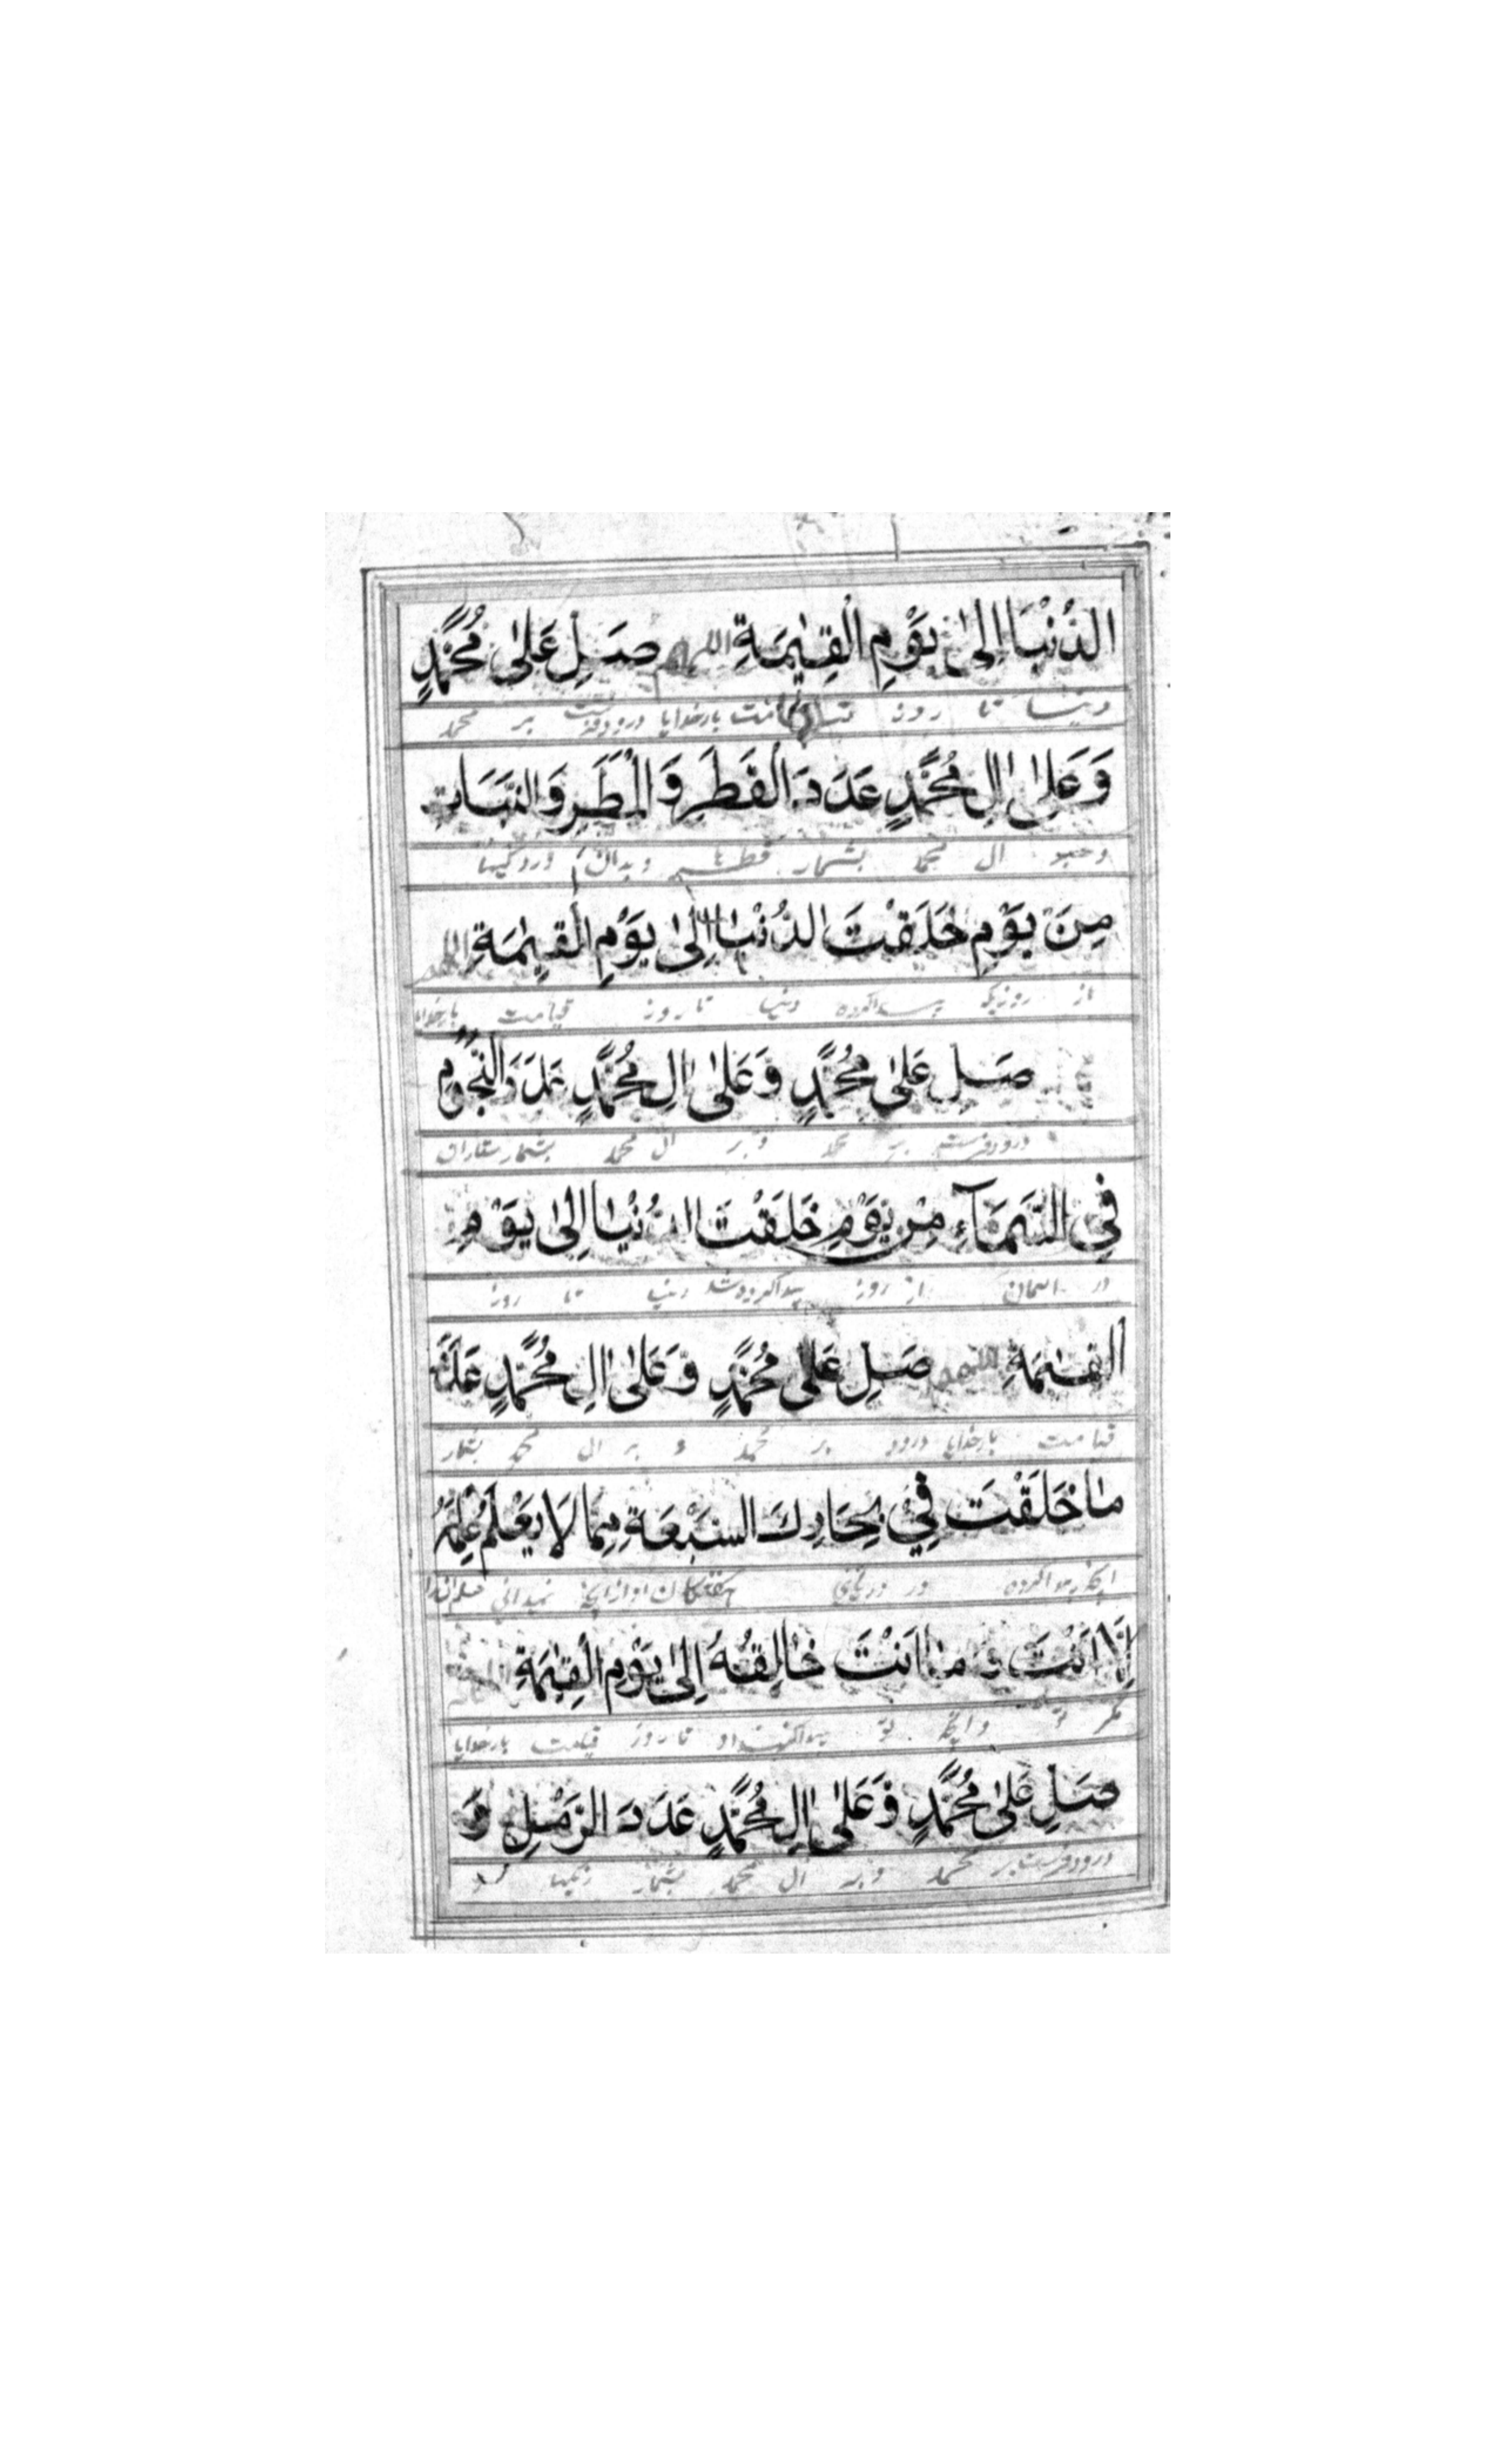 الدُّنْيَا اِلىٰ يَوْمِ الْقِيٰمَةِ اللهم صَلِ عَلىٰ مُحَمَّدٍ
دنیا تا روز قیامت بارخدایا درود فرست بر محمد
وَعَلىٰ اٰلِ مُحَمَّدٍ عَدَدَ الْقَطَرِ وَالْمَطَرِ وَالنَّبَاتِ
ال محمد بشمار و باران
مِنَ يَوْمِ خَلَقْتَ الدُّنْيَا اِلىٰ يَوْمِ الْقِيٰمَةِ اللهم
از روزیکه پیدا کرده دنیا تا روز قیامت بارخدایا
صَلِ عَلىٰ مُحَمَّدٍ وَعَلىٰ اٰلِ مُحَمَّدٍ عَدَدَ النُّجُومِ
درود فرست بر محمد و بر ال محمد بشمار ستارگان
فِي السَّمَآءِ مِنْ يَوْمِ خَلَقْتَ الدُنْيٰا اِلىٰ يَوْمِ
در اسمان از روز پیدا کرده شد دنیا تا روز
الْقِيٰمَةِ اللهم صَلِ عَلىٰ مُحَمَّدٍ وَعَلىٰ اٰلِ مُحَمَّدٍ عَدَدَ
قیامت بارخدایا درود بر محمد و بر ال محمد بشمار
مٰا خَلَقْتَ فِيْ بِحَارِكَ السَبْعَةِ مِمَّا لَا يَعْلَمُ عِلْمَهُ
انچه پیدا کرده در از انچه نمیدانی
اِلَّا اَنْتَ وَ مٰا اَنْتَ خٰالِقُهُ اِلىٰ يَوْمِ الْقِيٰمَةِ اللهم
مگر تو و انچه تو تا روز قیامت بارخدایا
صَلِ عَلىٰ مُحَمَّدٍ وَعَلىٰ اٰلِ مُحَمَّدٍ عَدَدَ الرَّمْلِ وَ
درود فرست بر محمد و بر ال محمد بشمار ریگها و